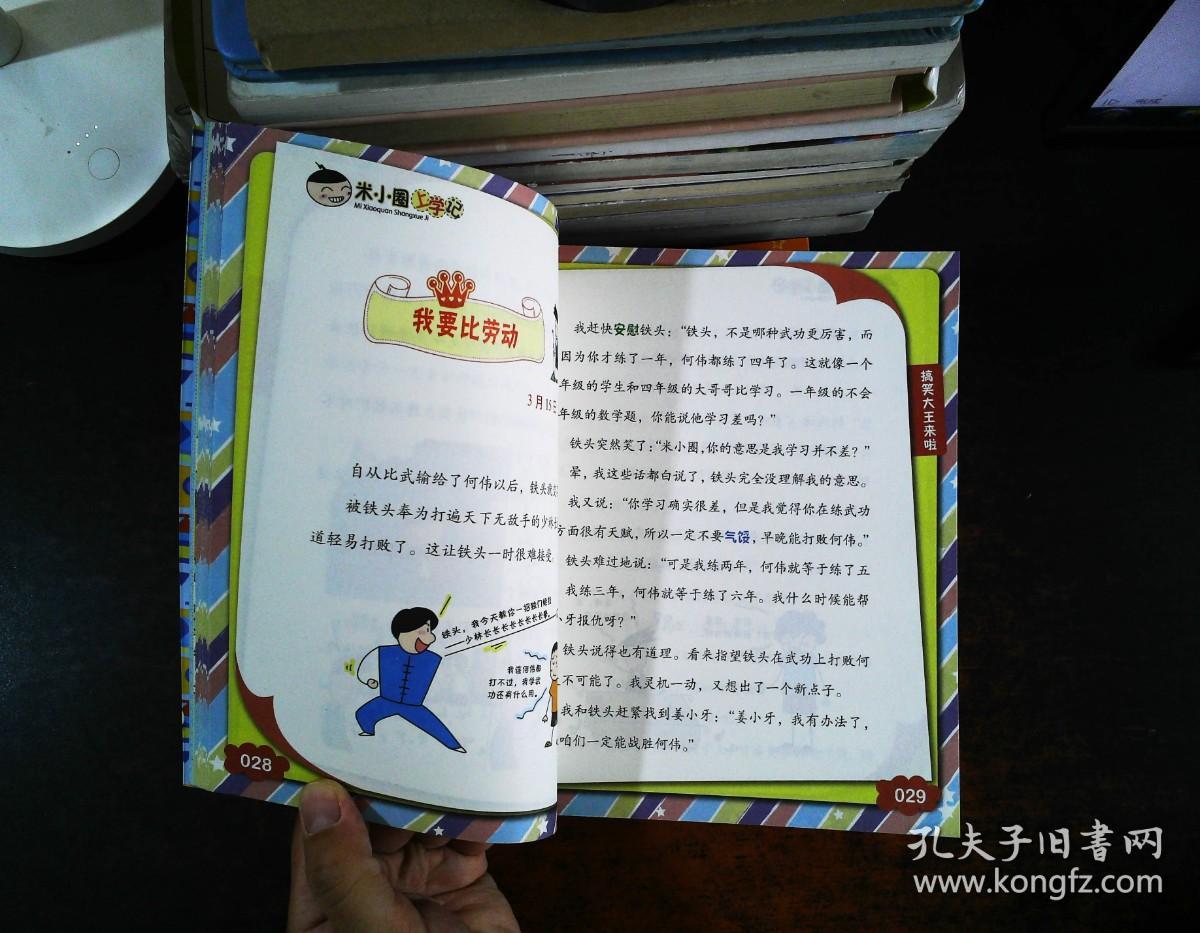 米小圈上学记
Mi Xiaoquan Shangxue Ji
我要比劳动
3月15
自从比武输给了何伟以后，铁头就
被铁头奉为打遍天下无敌手的少林
道轻易打败了。这让铁头一时很难接受。
铁头，我今天教你一招独门绝技
——少林长长长长长长长长拳。
我连何伟都
打不过，我学武
功还有什么用。
028
我赶快安慰铁头：“铁头，不是哪种武功更厉害，而
因为你才练了一年，何伟都练了四年了。这就像一个
年级的学生和四年级的大哥哥比学习。一年级的不会
年级的数学题，你能说他学习差吗？”
铁头突然笑了：“米小圈，你的意思是我学习并不差？”
晕，我这些话都白说了，铁头完全没理解我的意思。
我又说：“你学习确实很差，但是我觉得你在练武功
方面很有天赋，所以一定不要气馁，早晚能打败何伟。”
铁头难过地说：“可是我练两年，何伟就等于练了五
我练三年，何伟就等于练了六年。我什么时候能帮
牙报仇呀？”
铁头说得也有道理。看来指望铁头在武功上打败何
不可能了。我灵机一动，又想出了一个新点子。
我和铁头赶紧找到姜小牙：“姜小牙，我有办法了，
咱们一定能战胜何伟。”
搞笑大王来啦
029
孔夫子旧书网
www.kongfz.com